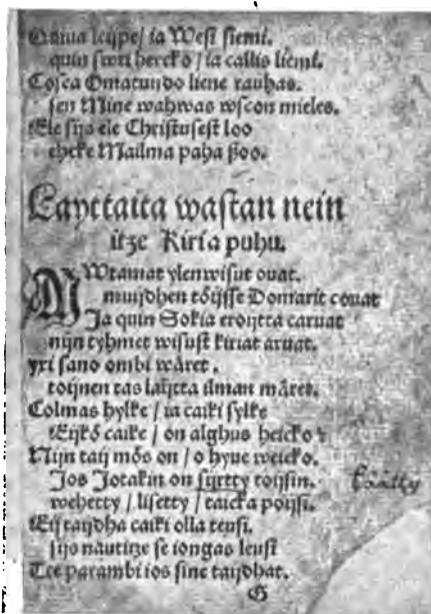 leijpe / ia Wesi siemi.
quin swri hercko / ia callis liemi.
Cosca Omatundo liene rauhas.
sen Mine wahwas wscon mieles.
Ele sijs ele Christusest loo
ehcke Mailma paha ßoo.
Layttaita wastan nein
itze Kiria puhu.
MWtamat ylenwisut ouat.
muijdhen töijsse Domarit couat
Ja quin Sokia eroijtta caruat
nijn tyhmet wisust kiriat aruat.
yxi sano ombi wäret.
toijnen tas laijtta ilman märet.
Colmas hylke / ia caiki sylke
Eijkö caike / on alghus heicko?
Nijn taij mös on / o hyue weicko.
Jos Jotakin on sijrtty toijsin.
wehetty / lisetty / taicka poijsi.
Eij taijdha caiki olla teusi.
sijs nautitze se iongas leusi
Tee parambi ios sine taijdhat.
G